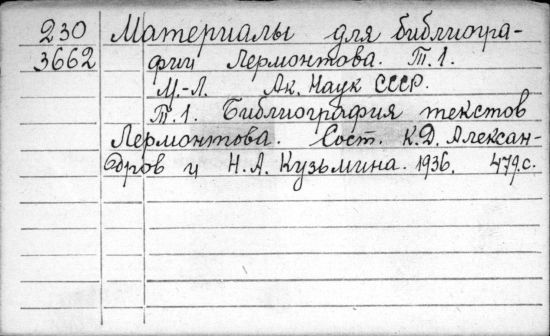 230 Материалы для библиогра-
3662 фии Лермонтова. Т.1.
М.-Л. Ак. Наук СССР.
Т.1. Библиография текстов
Лермонтова. Сост. К.Д. Алексан-
дров и Н.А. Кузьмина. 1936. 479.с.